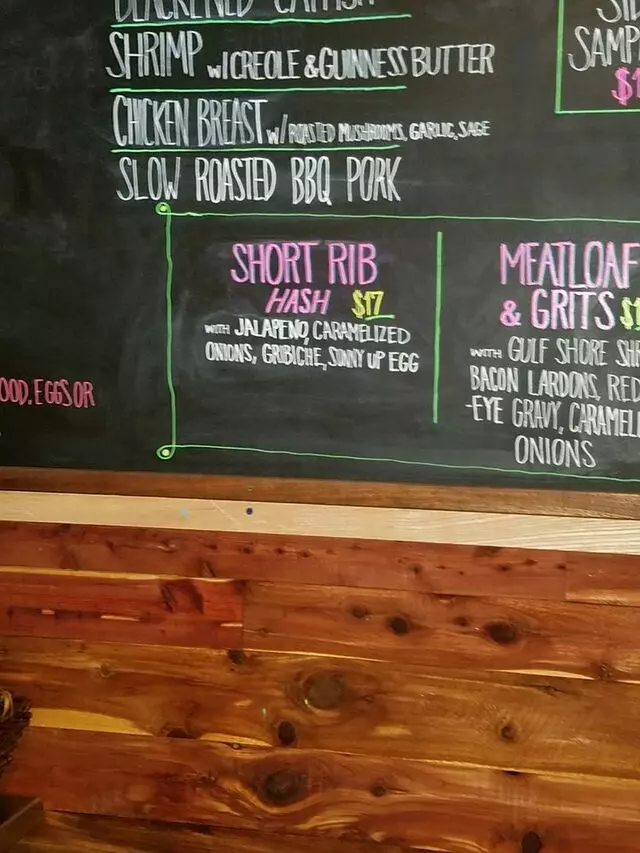 BLACKENED CATFISH
SHRIMP W/ CREOLE & GUINNESS BUTTER
CHICKEN BREAST W/ ROASTED MUSHROOMS, GARLIC, SAGE
SLOW ROASTED BBQ PORK
SAMP
$1
SHORT RIB
HASH $17
WITH JALAPENO, CARAMELIZED
ONIONS, GRIBICHE, SUNNY UP EGG
MEATLOAF
& GRITS $1
WITH GULF SHORE SHR
BACON LARDONS, RED
-EYE GRAVY, CARAMEL
ONIONS
OOD, EGGS OR